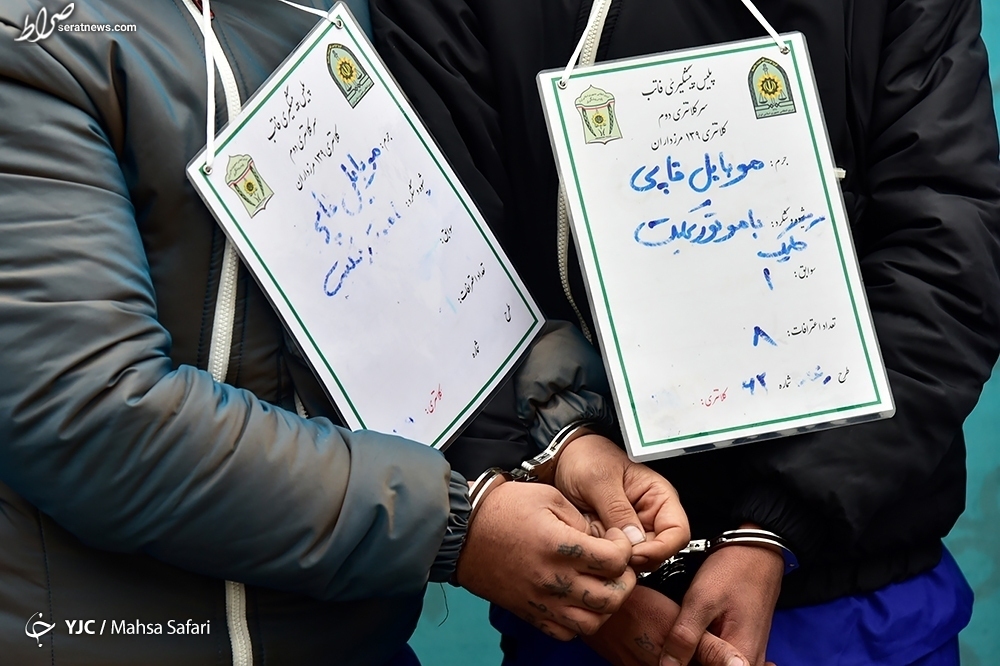 صراط
seratnews.com
پلیس پیشگیری فاتب
سرکلانتری دوم
کلانتری ۱۳۹ مرزداران
جرم: موبایل قاپی
پلیس پیشگیری فاتب
سرکلانتری دوم
کلانتری ۱۳۹ مرزداران
جرم: موبایل قاپی
شیوه و شگرد: با موتورسیکلت
سوابق: ۱
تعداد اعترافات: ۸
طرح شماره ۶۲
کلانتری:
شیوه و شگرد:
سوابق:
تعداد اعترافات:
طرح
شماره
کلانتری:
YJC / Mahsa Safari